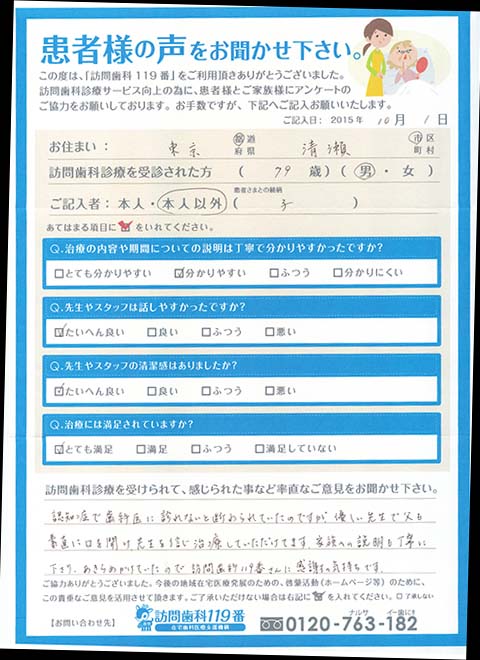 患者様の声をお聞かせ下さい。
この度は、「訪問歯科119番」をご利用頂きありがとうございました。
訪問歯科診療サービス向上の為に、患者様とご家族様にアンケートの
ご協力をお願いしております。お手数ですが、下記へご記入お願いいたします。
ご記入日: 2015年 10月 1日
お住まい: 東京 都道府県 清瀬 市区町村
訪問歯科診療を受診された方 ( 79 歳) (男・女)
患者さまとの続柄
ご記入者: 本人・本人以外 ( 子 )
あてはまる項目に☑をいれてください。
Q.治療の内容や期間についての説明は丁寧で分かりやすかったですか?
□とても分かりやすい ☑分かりやすい □ふつう □分かりにくい
Q.先生やスタッフは話しやすかったですか?
☑たいへん良い □良い □ふつう □悪い
Q.先生やスタッフの清潔感はありましたか?
☑たいへん良い □良い □ふつう □悪い
Q.治療には満足されていますか?
☑とても満足 □満足 □ふつう □満足していない
訪問歯科診療を受けられて、感じられた事など率直なご意見をお聞かせ下さい。
認知症で歯科医に診れないと断わられていたのですが優しい先生で父も
素直に口を開け先生を信じ治療していただけてます。家族への説明も丁寧に
下さり、あきらめかけていたので訪問歯科119番さんに感謝な気持ちです。
ご協力ありがとうございました。今後の地域在宅医療発展のための、啓蒙活動(ホームページ等)のために、
この貴重なご意見を活用させて頂きます。ご了承いただけない場合は右記に☑を入れてください。□了承しない
【お問い合わせ先】 訪問歯科119番
在宅歯科医療支援機構
ナルサ イー歯に!!
0120-763-182